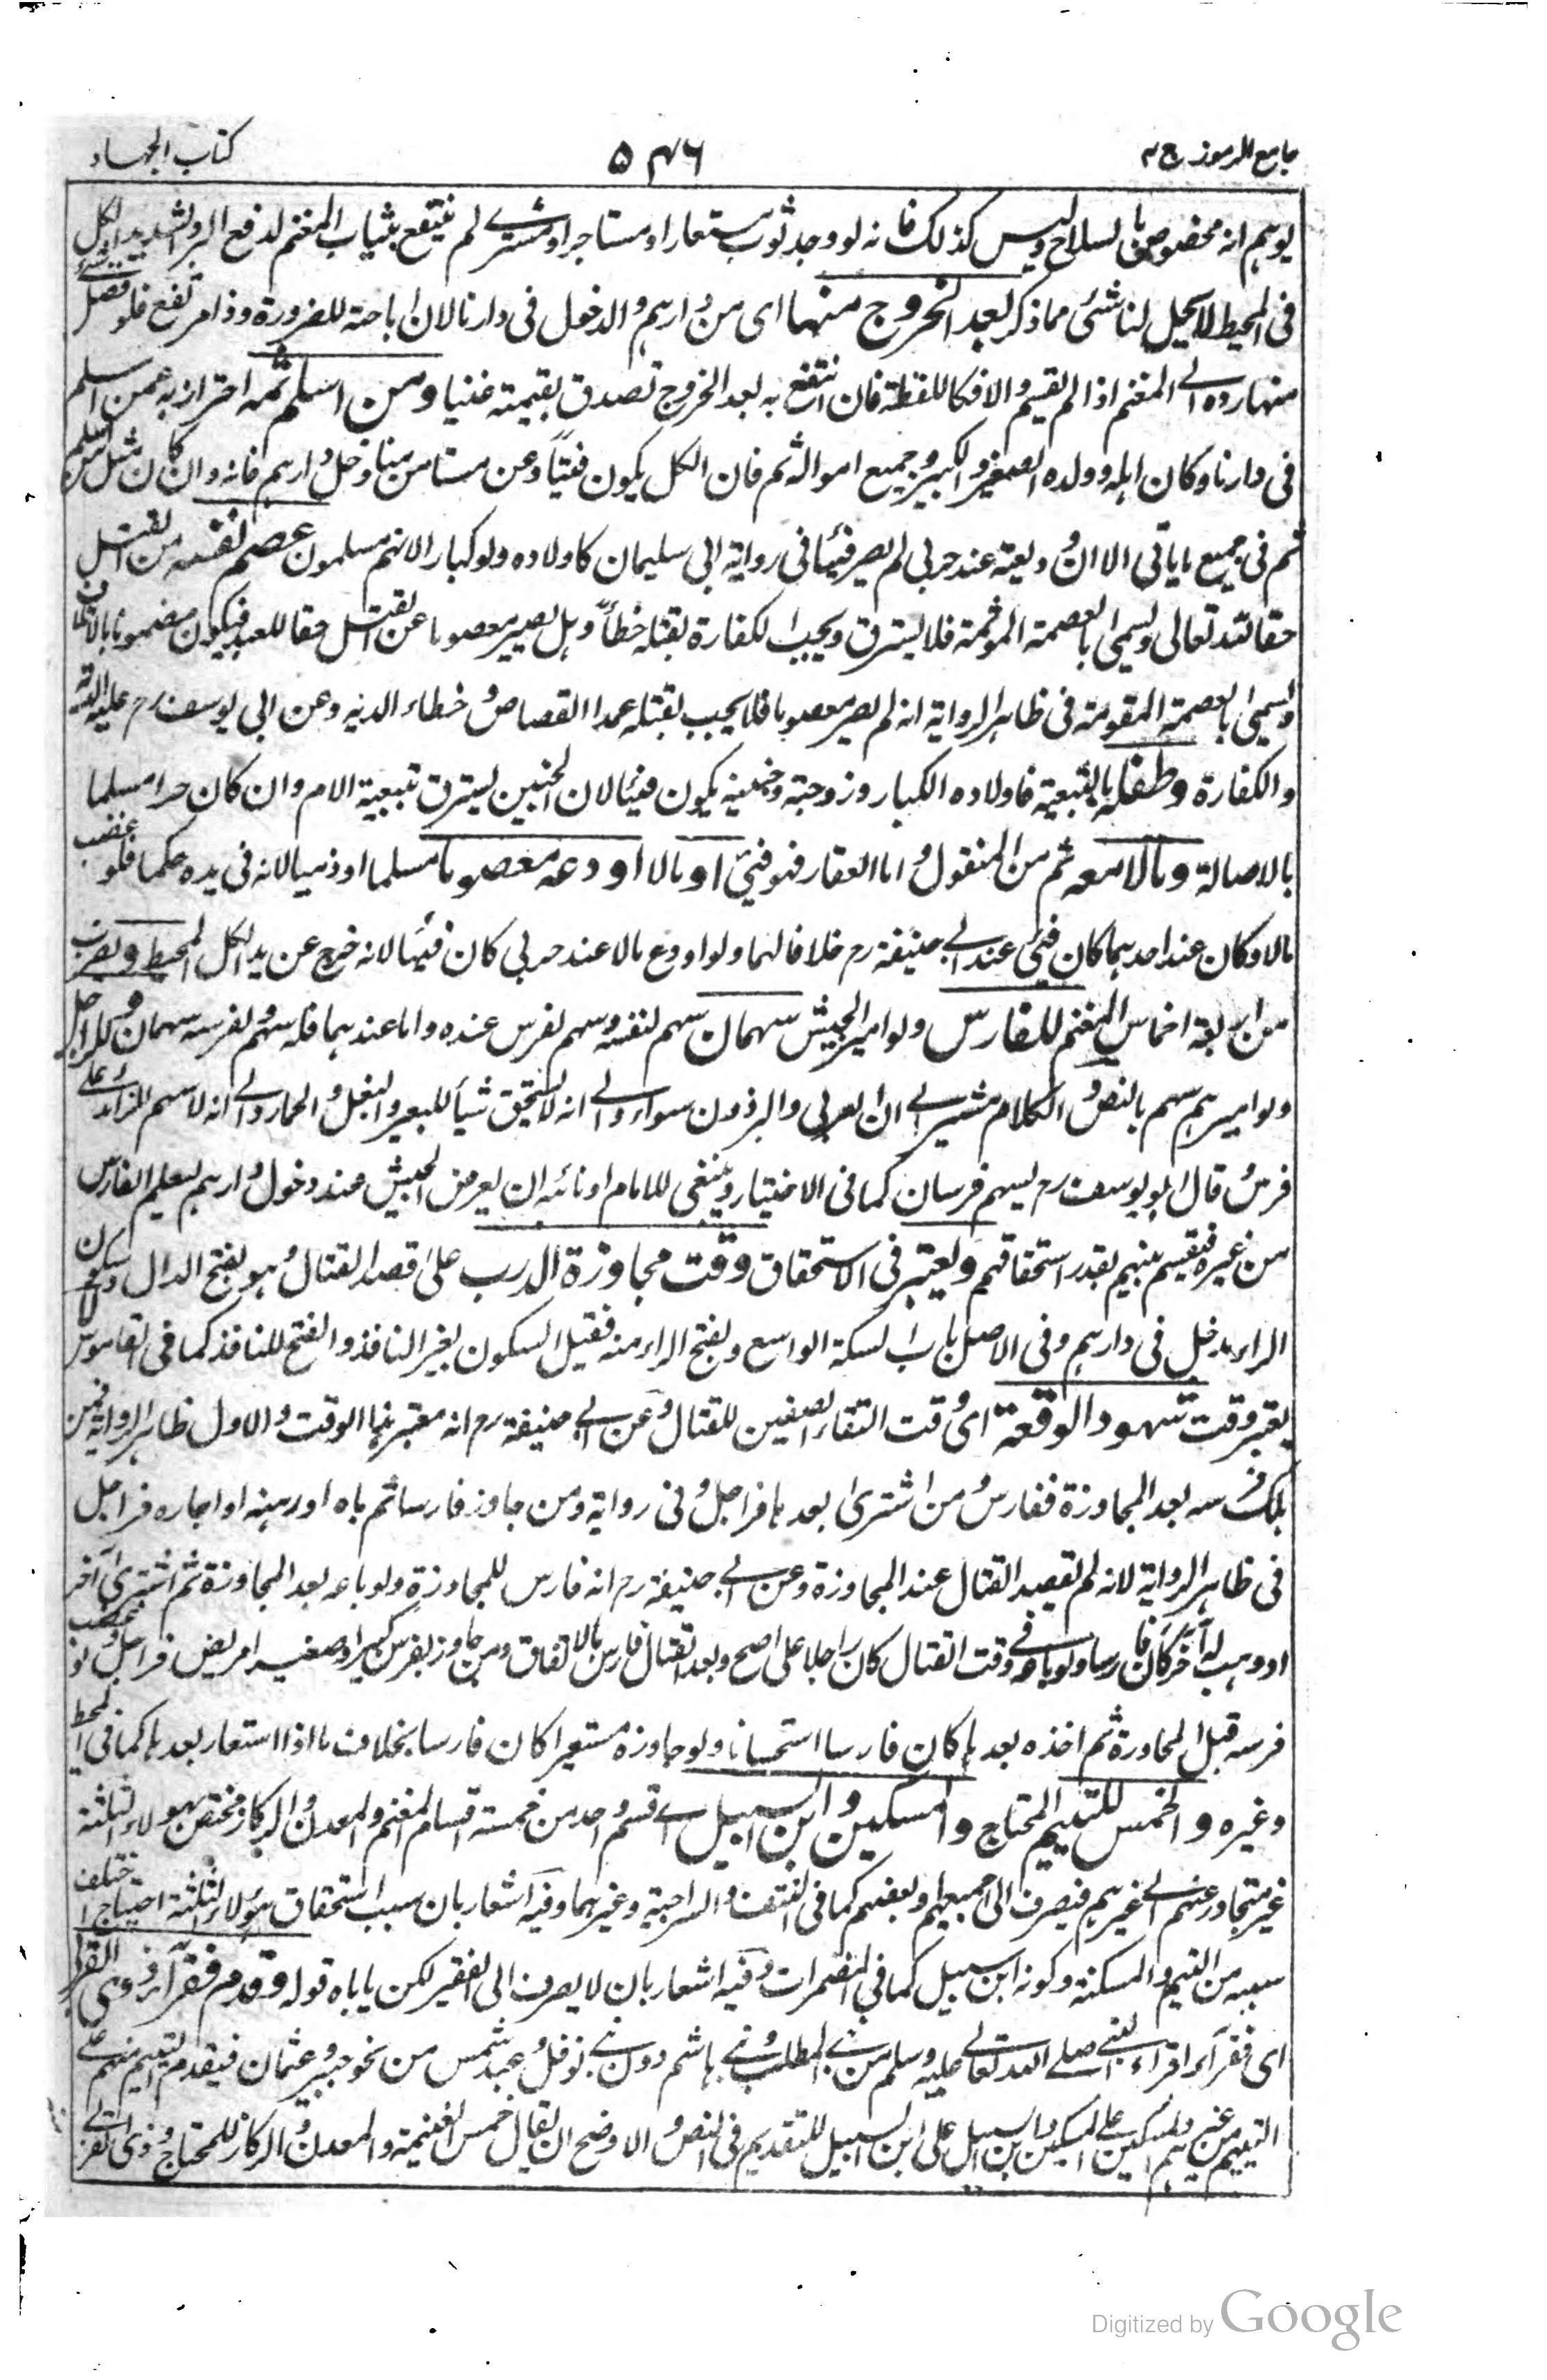 جامع الرموز ج ٢
٥٤٦
كتاب الجهاد
يوهم انه مخصوص بالسلاح وليس كذلك فانه لو وجد ثوب مستعار او مستاجر او مشترے لم ينتفع بثياب المغنم لدفع البرد الشديد الكل
فى المحيط لا يحل لنا شئ مما ذكر بعد الخروج منها اى من دارهم والدخول فى دارنا لان اباحته للضرورة وذا مرتفع فلو فضل شئ
منها رده الے المغنم اذا لم يقسم والا فكاللقطة فان انتفع به بعد الخروج تصدق بقيمته غنيا ومن اسلم ثمه احتراز به عمن اسلم
فى دارنا وكان اهله وولده الصغير والكبير وجميع امواله ثم فان الكل يكون فيئا وعن مستامن منا دخل دارهم فانه وان كان مثل من اسلم
ثم فى جميع ما ياتى الا ان وديعته عند حربى لم يصر فيئا فى رواية ابى سليمان كاولاده ولو كبارا لانهم مسلمون عصم نفسه من القتل
حقا لله تعالى ويسمى بالعصمة الموثمة فلا يسترق ويجب الكفارة بقتله خطأ وهل يصير معصوما عن القتل حقا للعبد فيكون مضمونا بالاتلاف
ويسمى بالعصمة المقومة فى ظاهر الرواية انه لم يصر معصوما فلا يجب بقتله عمدا القصاص وخطاء الدية وعن ابى يوسف رح عليه الدية
والكفارة وطفله بالتبعية فاولاده الكبار وزوجته وجنينه يكون فيئا لان الجنين يسترق تبعية الام وان كان حرا مسلما
بالاصالة ومالا معه ثم من المنقول واما العقار فهو فيئ او مالا اودعه معصوما مسلما او ذميا لانه فى يده حكما فلو غصب
مالا وكان عند احدهما كان فيئ عند ابے حنيفة رح خلافا لهما ولو اودع مالا عند حربى كان فيئا لانه خرج عن يد الكل المحيط ويصرف
من اربعة اخماس المغنم للفارس ولو امير الجيش سهمان سهم لنفسه وسهم لفرس عنده واما عندهما فله سهم ولفرسه سهمان وللراجل
ولو اميرهم سهم بالنص والكلام مشير الے ان العربى والبرذون سواء والے انه لا يستحق شيأ للبعير والبغل والحمار والے انه لا سهم للزائد على
فرس وقال ابو يوسف رح يسهم فرسان كما فى الاختيار وينبغى للامام او نائبه ان يعرض الجيش عند دخول دارهم ليعلم الفارس
من غيره فيقسم بينهم بقدر استحقاقهم ويعتبر فى الاستحقاق وقت مجاوزة الدرب على قصد القتال وهو بفتح الدال وسكون
الراء مدخل فى دارهم وفى الاصل باب السكة الواسع وبفتح الراء منه فقيل السكون لغير النافذ والفتح للنافذ كما فى القاموس لا
يعتبر وقت شهود الوقعة اى وقت التقاء الصفين للقتال وعن ابے حنيفة رح انه معتبر بهذا الوقت والاول ظاهر الرواية فمن
هلك فرسه بعد المجاوزة ففارس ومن اشترى بعدها فراجل وفى رواية ومن جاوز فارسا ثم باه او رهنه او اجاره فراجل
فى ظاهر الرواية لانه لم يقصد القتال عند المجاوزة وعن ابے حنيفة رح انه فارس للمجاوزة ولو باعه بعد المجاوزة ثم اشترى آخر
او وهب له آخر كان فارسا ولو باعه فے وقت القتال كان راجلا على اصح وبعد القتال فارس بالاتفاق ومن جاوز بفرس كبير او صغير او مريض فراجل ولو غصب
فرسه قبل المجاوزة ثم اخذه بعدها كان فارسا استحسانا ولو جاوزه مستعيرا كان فارسا بخلاف ما اذا استعار بعدها كما فى المحيط
وغيره والخمس لليتيم المحتاج والمسكين وابن السبيل اے قسم واحد من خمسة اقسام المغنم والمعدن والركاز مختص بهولاء الثلثة
غير متجاوز عنهم الے غيرهم فيصرف الى جميعهم او بعضهم كما فى النتف والسراجية وغيرهما وفيه اشعار بان سبب استحقاق هؤلاء الثلثة احتياج اختلف
سببه من اليتيم والمسكنة وكونه ابن سبيل كما فى المضمرات وفيه اشعار بان لا يصرف الى الفقير لكن ياباه قوله وقدم فقرآء ذوى القربى
اى فقرآء اقرباء النبى صلے الله تعالے عليه وسلم من بنے المطلب وبنے هاشم دون بنے نوفل وعبد شمس من نحو جبير وعثمان فيقدم اليتيم منهم على
اليتيم من غيرهم والمسكين على المسكين وابن السبيل على ابن السبيل للتقديم فى النص والاوضح ان يقال خمس الغنيمة والمعدن والركاز للمحتاج وذوى القربے
Digitized by Google